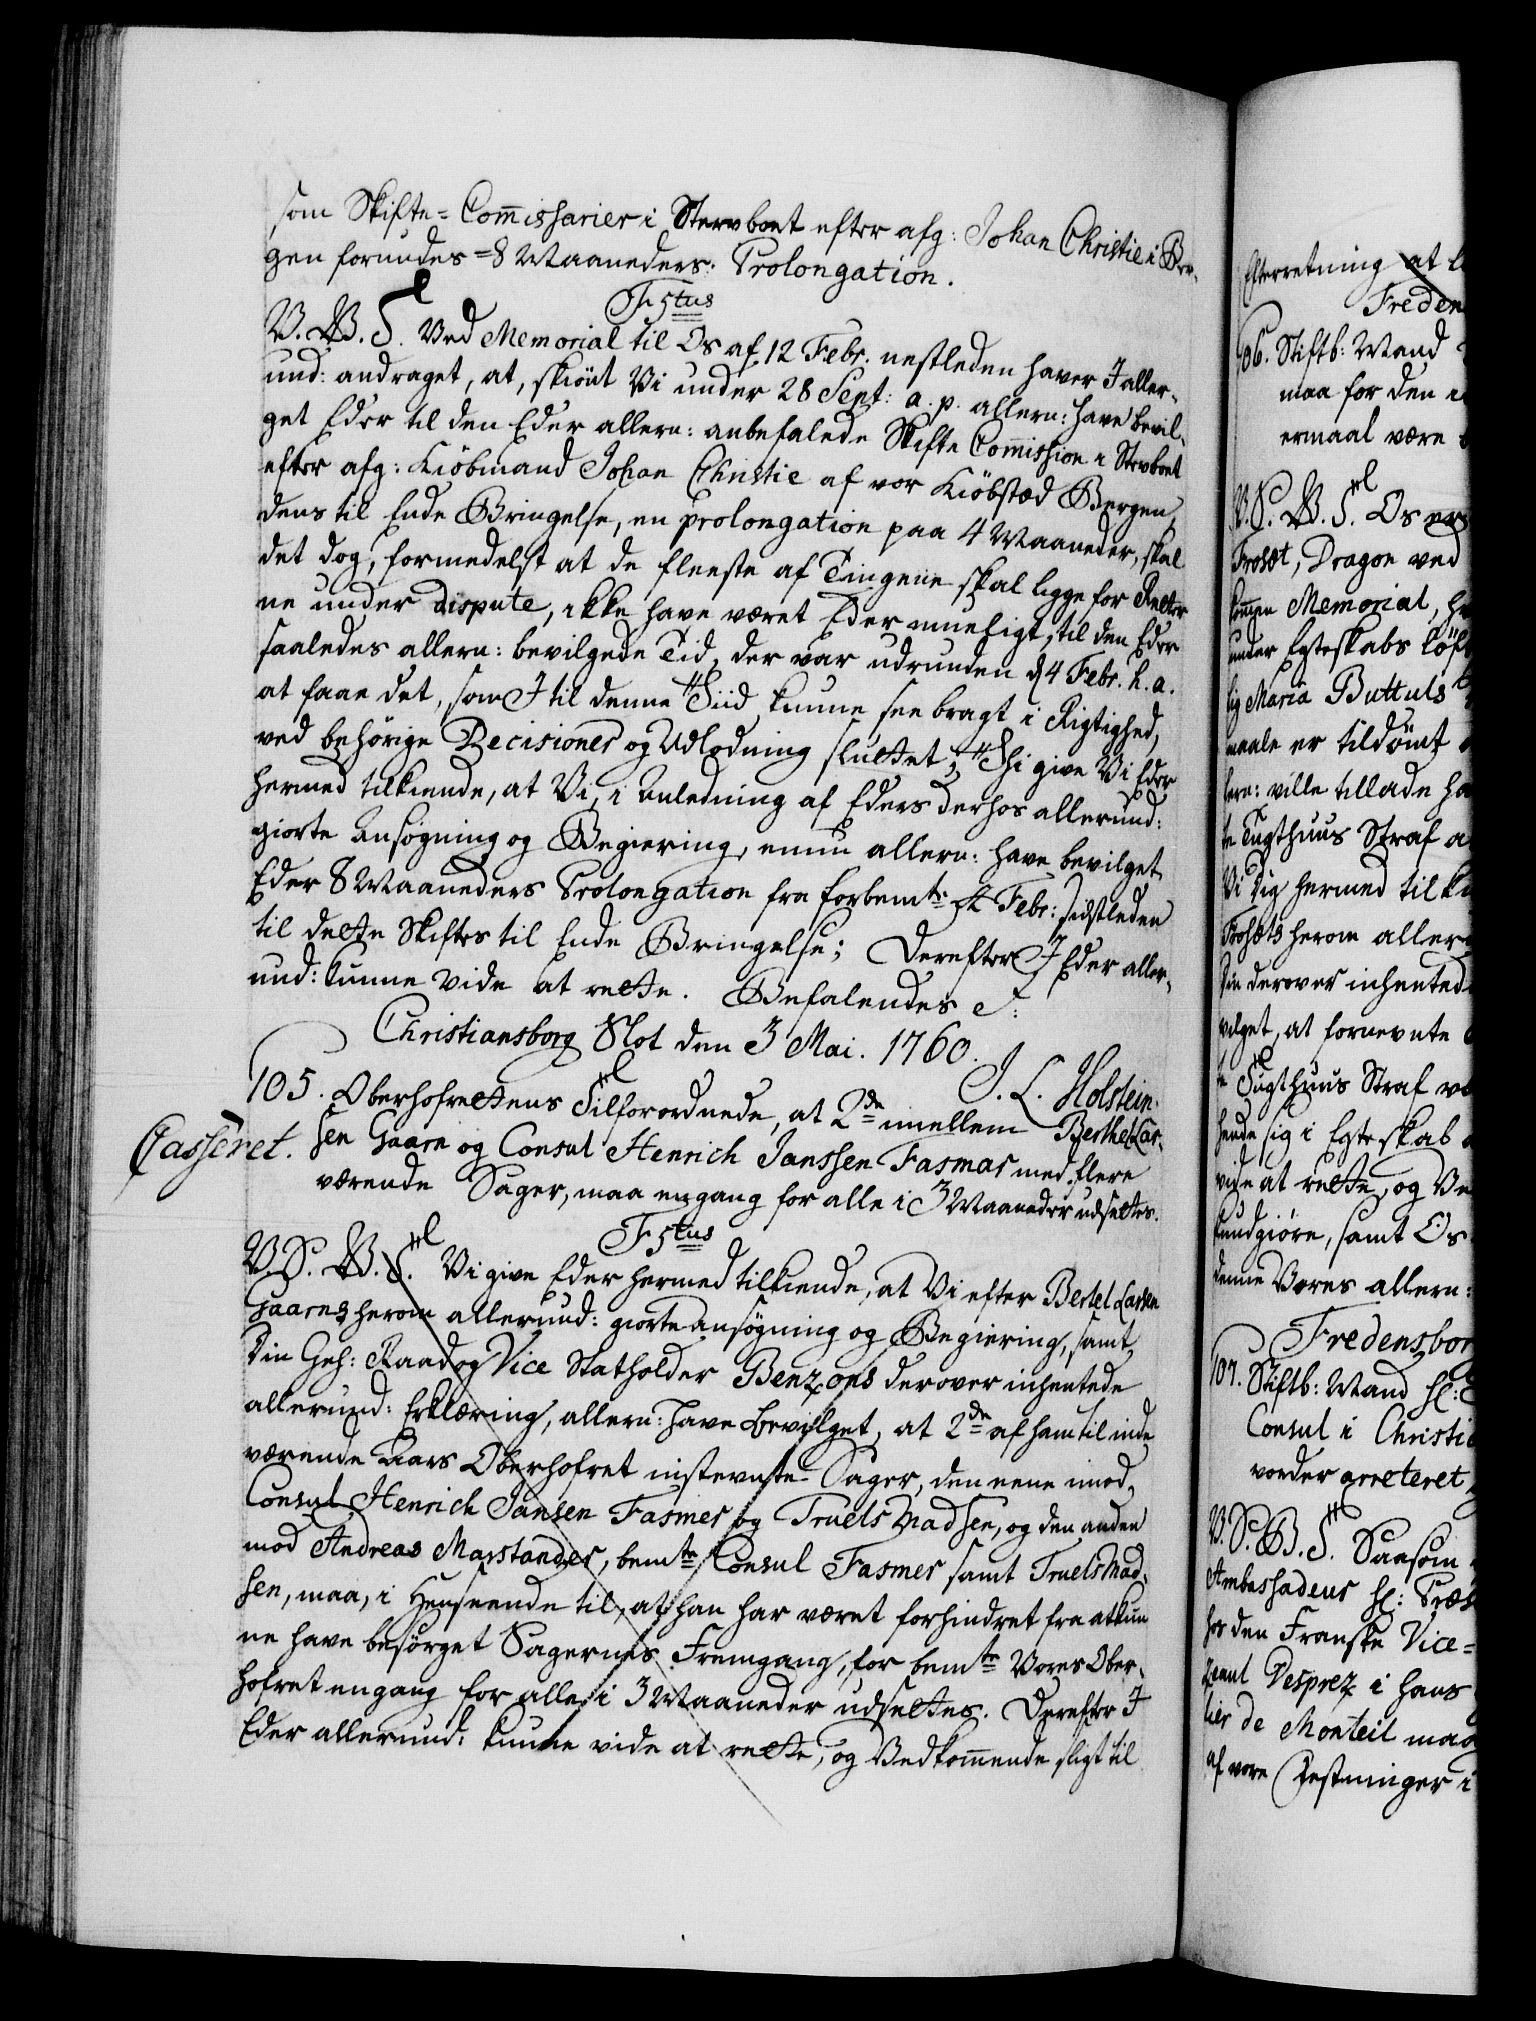 som Skifte-Com̄issarier i Stervboet efter afg: Johan Christie i Ber-
gen forundes 8 Maaneders Prolongation.
F 5tus
V. W. G. Ved Memorial til Os af 12 Febr. nestleden haver I aller-
und: andraget, at, skiönt Vi under 28 Sept: a. p. allern: have bevil-
get Eder til den Eder allern: anbefalede Skifte Com̄ission i Stervboet
efter afg: Kiöbmand Johan Christie af vor Kiöbstæd Bergen,
dens til Ende Bringelse, en prolongation paa 4 Maaneder, skal
det dog, formedelst at de fleeste af Tingene skal ligge for Retter
ne under dispute, ikke have været Eder mueligt, til den Eder
saaledes allern: bevilgede Tid, der var udrunden d 4 Febr. h. a.
at faae det, som I til denne Tiid kunne see bragt i Rigtighed,
ved behörige Decisioner og Udlodning sluttet; Thi give Vi Eder
hermed tilkiende, at Vi, i Anledning af Eders derhos allerund:
giorte Ansögning og Begiering, ennu allern: have bevilget
Eder 8 Maaneders Prolongation fra forbemte 4 Febr: sidstleden
til dette Skiftes til Ende Bringelse; Derefter I Eder aller-
und: kunne vide at rette. Befalendes &:
Christiansborg Slot den 3 Mai. 1760.
J. L. Holstein.
105. Oberhofrettens Tilforordnede, at 2de imellem Berthel Lar-
Casseret. sen Gaarn og Consul Henrich Janssen Fasmar med flere
værende Sager, maa engang for alle i 3 Maaneder udsettes.
F 5tus
V. S. W. G. Vi give Eder hermed tilkiende, at Vi efter Bertel Larsen
Gaarns herom allerund: giorte ansögning og Begiering, samt
Din Geh: Raad og Vice Statholder Benzons derover inhentede
allerund: Erklæring, allern: have bevilget, at 2de af ham til inde
værende Aars Oberhofret instevnte Sager, den eene imod
Consul Henrich Jansen Fasmer og Truels Madsen, og den anden
mod Andreas Marstander, bemte Consul Fasmer samt Truels Mad-
sen, maa, i Henseende til, at han har været forhindret fra at kun
ne have besörget Sagernes Fremgang, for bemte Vores Ober-
hofret engang for alle i 3 Maaneder udsettes. Derefter I
Eder allerund: kunne vide at rette, og Vedkom̄ende sligt til
Efterretning at
Freden
106. Stiftb: Wand
maa for den
ermaal være
V. S. W. G. Os er
Frosæt, Dragon ved
kom̄en Memorial,
under Egteskabs Löf
lig Maria Buttuls
maale er tildömt
lern: ville tillade ha
te Tugthuus Straf a
Vi Dig hermed tilki
Frosæts herom aller
Din derover inhented
vilget, at fornevnte
te Tugthuus Straf
hende sig i Egteskab
vide at rette, og Ve
kundgiöre, samt Os
denne Vores allern:
Fredensbor
107. Stiftb: Wand
Consul i Christi
vorder arreteret
V. S. W. G. Saasom
Ambassadeur Hr:
hos den Franske Vice-
Desprez i hans
lier de Monteil maa
af vore Festninger i